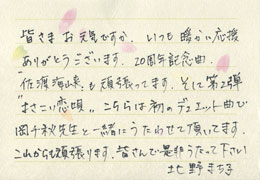 皆さま お元気ですか。いつも 暖かい応援
ありがとうございます。20周年記念曲
"佐渡海峡"も頑張ってます。そして第2弾
"よさこい恋唄"こちらは初のデュエット曲で
岡千秋先生と一緒にうたわせて頂いてます。
これからも頑張ります。皆さんで是非うたって下さい
北野まち子